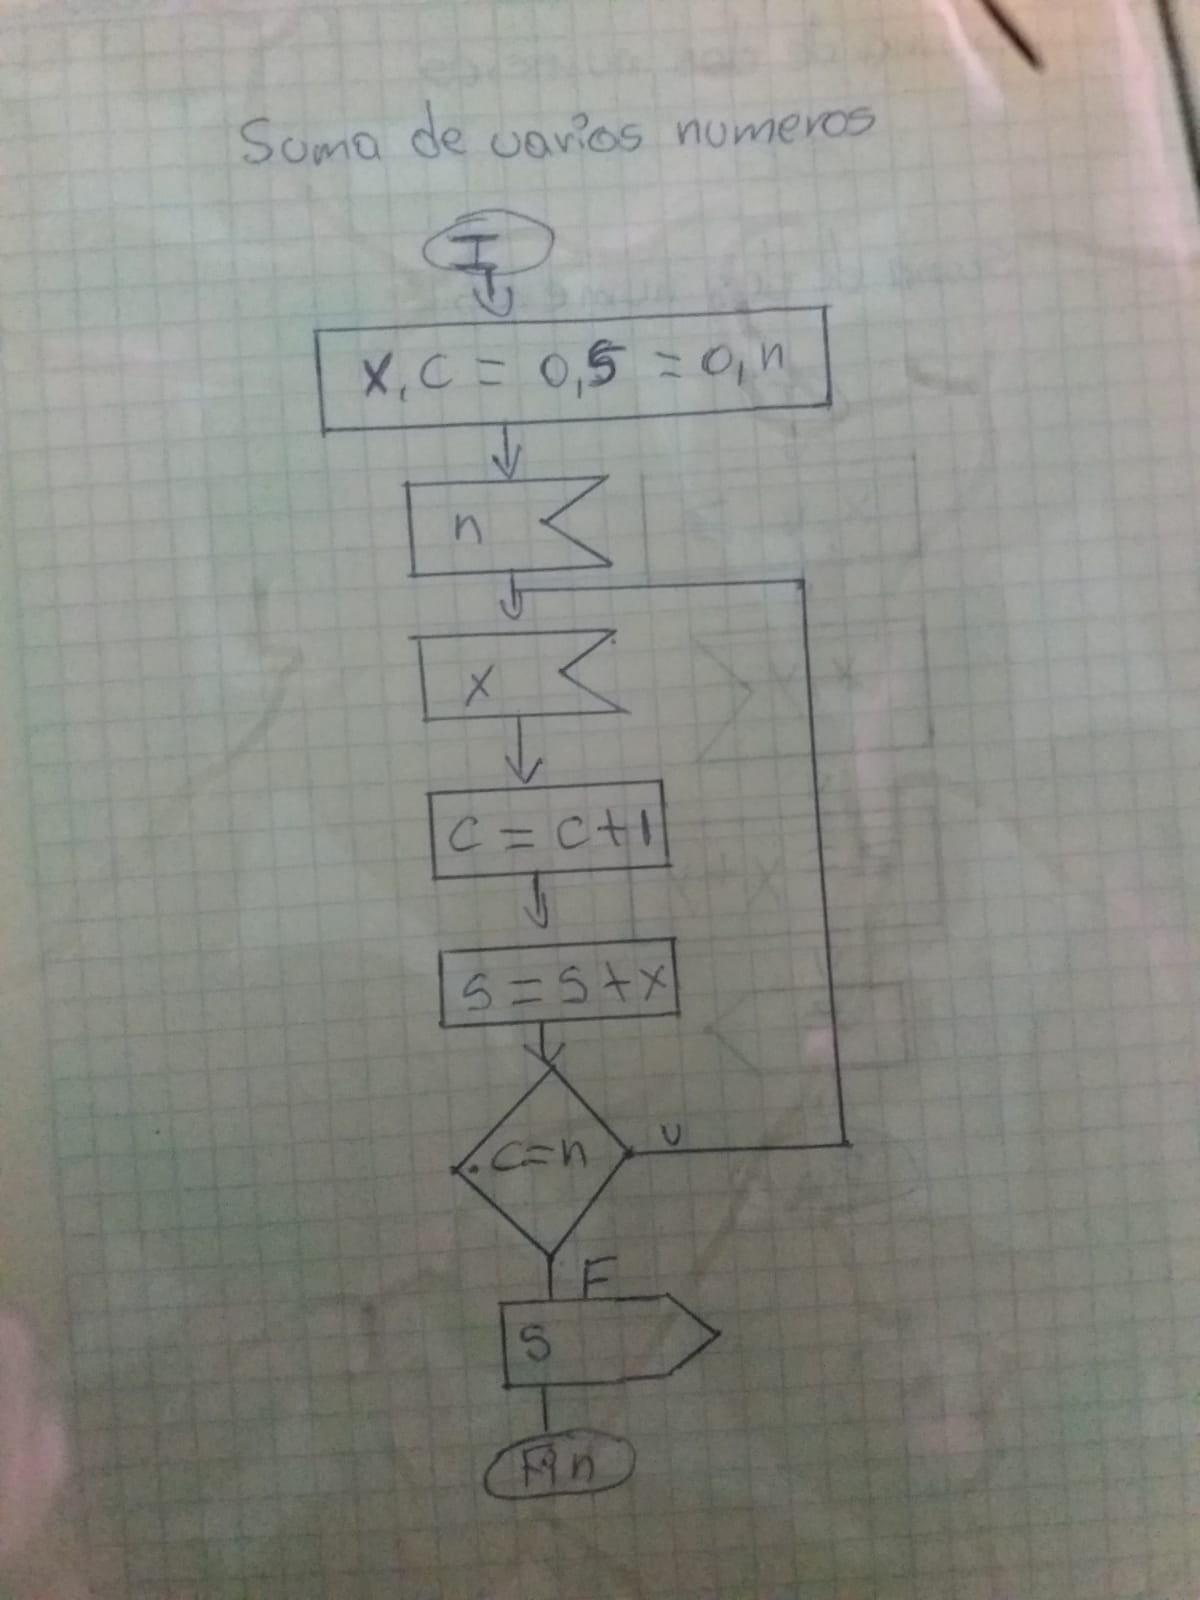 Suma de varios numeros
I
X, C = 0, S = 0, n
n
x
C = C + 1
S = S + x
C = n
V
F
S
Fin